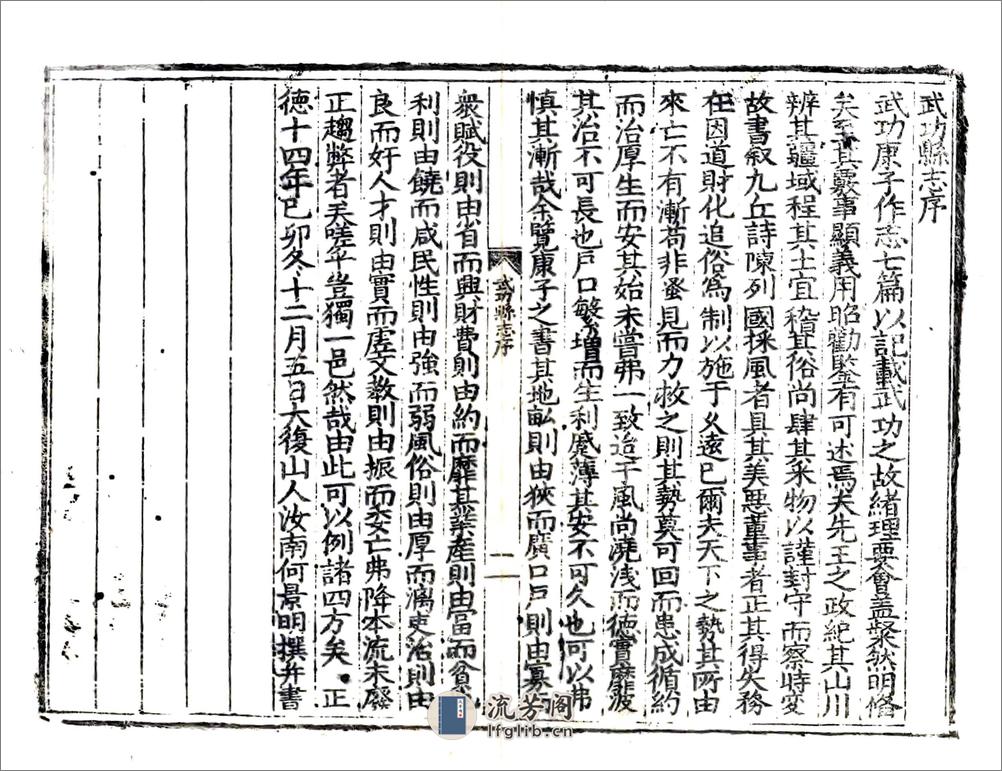 武功縣志序
武功康子作志七篇以記載武功之故緒理要會蓋粲然明備
矣至其覈事顯義用昭勸鑒有可述焉夫先王之政紀其山川
辨其疆域程其土宜稽其俗尚肆其采物以謹封守而察時變
故書叙九丘詩陳列國採風者具其美惡董事者正其得失務
在因道財化追俗爲制以施于久遠已爾夫天下之勢其所由
來亡不有漸苟非蚤見而力救之則其勢莫可回而患成循約
而治厚生而安其始未嘗弗一致迨于風尚澆淺而德實靡波
其治不可長也戶口繁增而生利蹙薄其安不可久也可以弗
慎其漸哉余覽康子之書其地畝則由狹而廣口戶則由寡而
武功縣志序
一
衆賦役則由省而興財費則由約而靡其業産則由富而貧
利則由饒而咸民性則由強而弱風俗則由厚而漓吏治則由
良而好人才則由實而虛文教則由振而委亡弗降本流末廢
正趨弊者矣嗟乎豈獨一邑然哉由此可以例諸四方矣正
德十四年己卯冬十二月五日大復山人汝南何景明撰并書
流芳阁
lfglib.cn